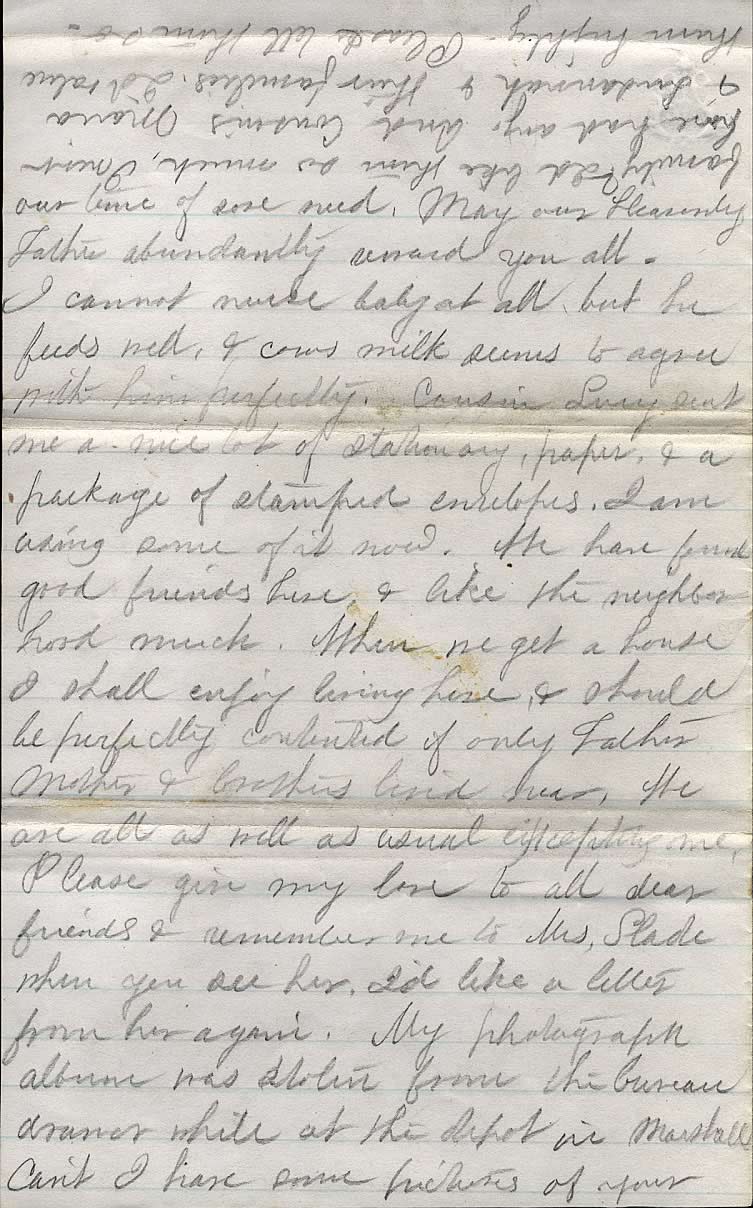 our time of sore need. May our Heavenly
Father abundantly reward you all.
I cannot nurse baby at all, but he
feeds well, & cows milk seems to agree
with him perfectly. Cousin Lucy sent
me a nice lot of stationary, paper, & a
package of stamped envelopes. I am
using some of it now. We have found
good friends here, & like the neighbor
hood much. When we get a house
I shall enjoy living here, & should
be perfectly contented if only Father
Mother & brothers lived near, We
are all as well as usual excepting me,
Please give my love to all dear
friends & remember me to Mrs, Slade
when you see her, I'd like a letter
from her again. My photograph
album was stolen from the bureau
drawer while at the depot in Marshall
Can't I have some pictures of your
family? I'd like them so much, never
have had any. And Cousins Maria
& Susannah & their families. I'd value
them highly. Please tell them so -